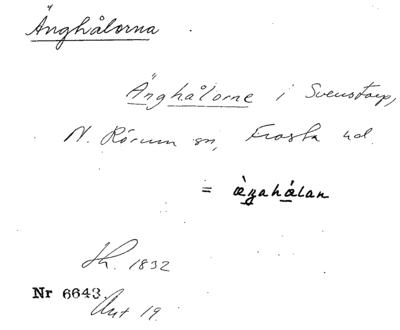 Änghålorna
Änghålorne i Svenstorp,
N. Rörum sn, Frosta hd.
= æ̀ŋahålan
Sk. 1832
Nr 6643.
Akt 19.